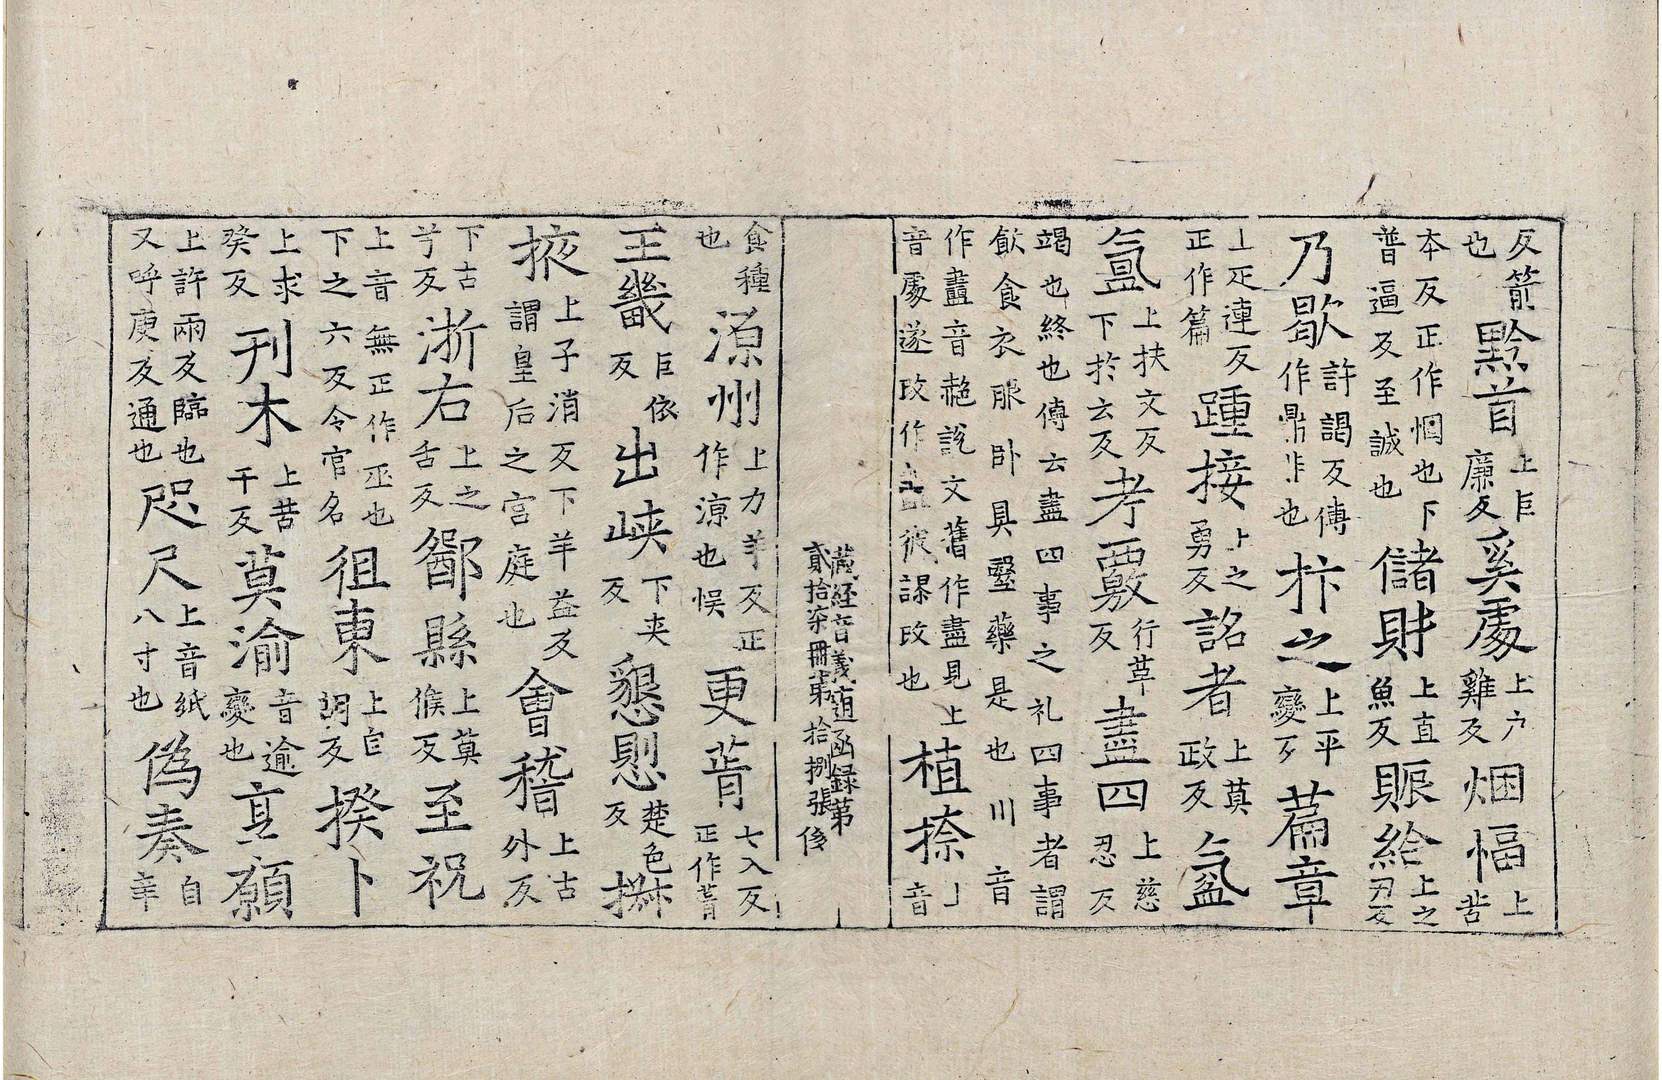 反箭也黔首上巨廉反奚䖏上户雞反烟愊上苦
本反正作悃也下普逼反至誠也儲財上直魚反賑給上之刃反
乃歇許謁反傳作鼎非也抃之上平變反萹章
上疋連反正作篇踵接上之勇反詺者上莫政反氛
氳上扶文反下於云反考覈行草反盡四上慈忍反
竭也終也傳云盡四事之礼四事者謂
飲食衣服卧具毉藥是也川音
作盡音赩說文舊作盡見上
音䖏遂改作盡彼謀改也植捺音
藏經音義随函録第
貳拾柒冊第拾捌張後
食種也湶州上力羊反正作涼也悮更蒥七入反正作葺
王畿巨依反出峡下夹反懇惻楚色反
掖上子消反下羊益反謂皇后之宫庭也會稽上古外反
下古兮反浙右上之舌反鄮縣上莫候反至祝
上音無正作巫也下之六反令官名徂東上自胡反揆卜
上求癸反刊木上苦干反莫渝音逾變也亶願
上許兩反臨也又呼庚反通也咫尺上音紙八寸也偽奏自